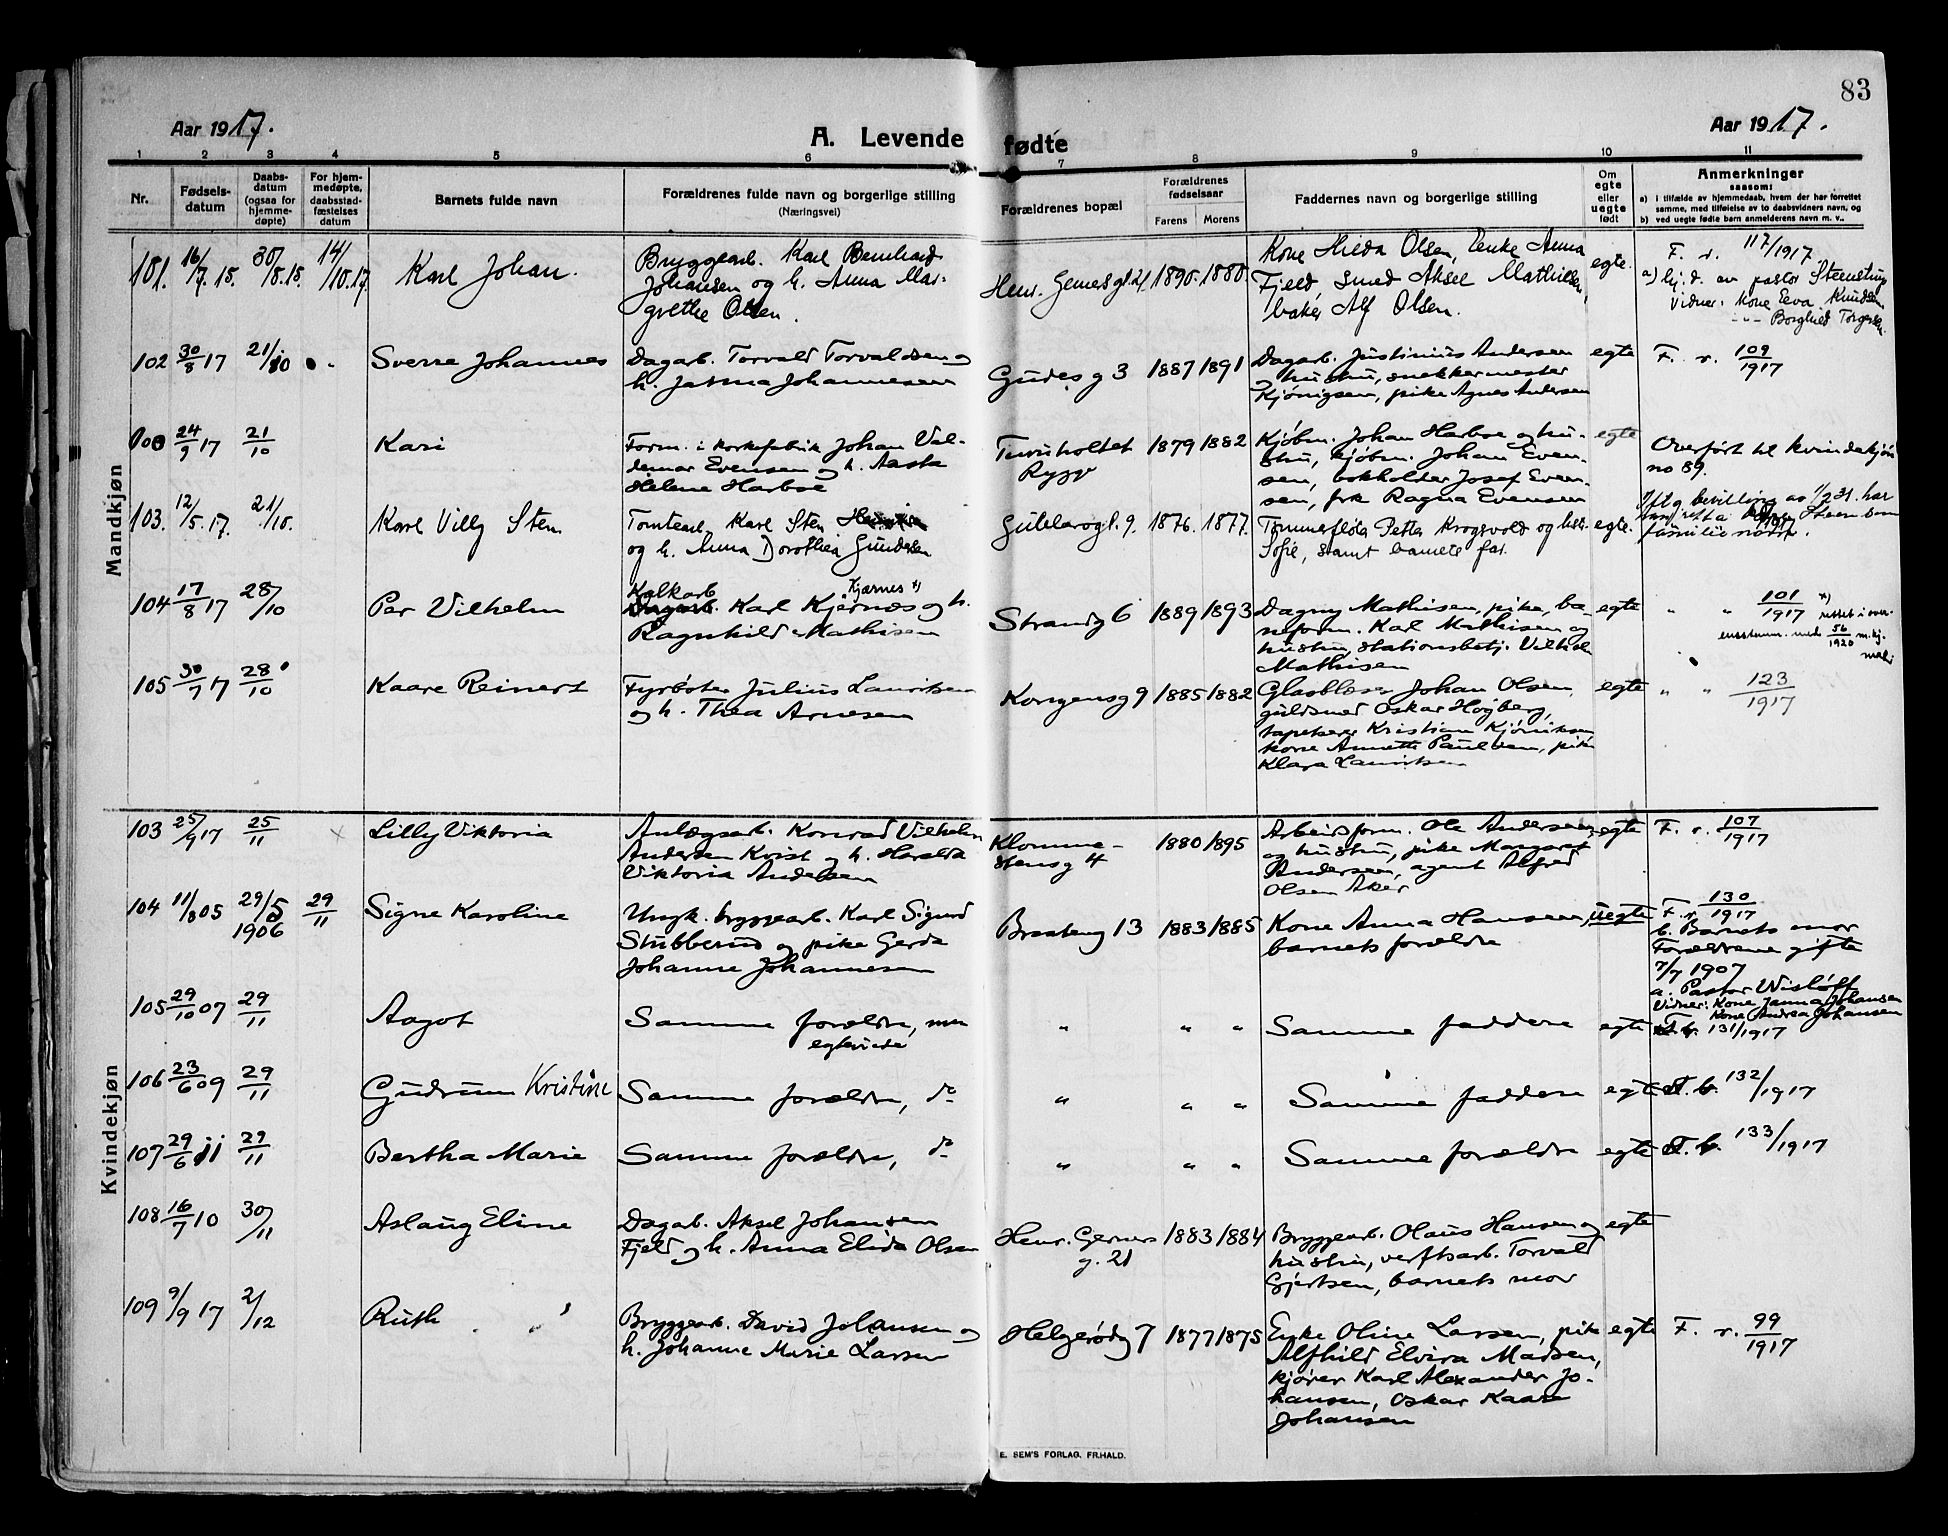 83
Aar 1917.
A. Levende fødte
Aar 1917.
1 2 3 4 5 6 7 8 9 10 11
Nr.
Fødsels-
datum
Daabs-
datum
(ogsaa for
hjemme-
døpte)
For hjem-
medøpte,
daabsstad-
fæstelses
datum
Barnets fulde navn
Forældrenes fulde navn og borgerlige stilling
(Næringsvei)
Forældrenes bopæl
Forældrenes
fødselsaar
Farens Morens
Faddernes navn og borgerlige stilling
Om
egte
eller
uegte
født
Anmerkninger
saasom:
a) i tilfælde av hjemmedaab, hvem der har forrettet
samme, med tilføielse av to daabsvidners navn, og
b) ved uegte fødte barn anmelderens navn m. v..
Mandkjøn
101. 16/7. 15. 30/8.15. 14/10.17. Karl Johan.
Bryggearb. Karl Bernhard
Johansen og h. Anna Mar-
grethe Olsen.
Henr. Gernesgt. 21 1890. 1880.
Kone Hilda Olsen, Enke Anna
Fjeld Smed Aksel Mathisen,
baker Alf Olsen.
egte.
F. r. 117/1917
a) hj. d. av pastor Steenstrup
Vidner: Kone Eeva Knudsen
Borghild Torgersen
102 30/8 17 21/10 Sverre Johannes
Dagarb. Torvald Torvaldsen og
h. Jasma Johannesen
Gudes g 3 1887 1891
Dagarb. Justinius Andersen
hustru, snekkermester
Kjønigsen, pike Agnes Andersen
egte F. r. 109/1917
24/9 17 21/10 Kari
Form. i korkefabrik Johan Val-
demar Evensen og h. Aasta
Helene Harboe
Rygge 1879 1882
Kjøbm. Johan Harboe og hu-
stru, kjøbm. Johan Even-
sen, bokholder Josef Even-
sen, frk Ragna Evensen
egte
Overført til kvindekjøn
no 89.
103. 12/5. 17. 21/10. Karl Villy Sten
Tomtearb. Karl Sten
og h. Anna Dorothea Gundersen
1876. 1877.
Tømmerfløter Petter Krogsvold og
Sofie, samt barnets far.
egte.
Iflg bevilling av
familienavn.
104 17/8 17 28/10 Per Vilhelm
Kalkarb Kjærnes x)
Dagarb. Karl Kjernæs og h.
Ragnhild Mathisen
Strandg 6 1889 1893
Dagny Mathisen, pike, ba-
neform. Karl Mathisen og
hustru, stationsbetj. Vilhelm
Mathisen
egte " " 101/1917 x)
rettet i over-
ensstem. med 56/1920 m.kj.
105 30/7 17 28/10 Kaare Reinert
Fyrbøter Julius Lauritsen
og h. Thea Arnesen
Kongensg 9 1885 1882
Glasblæser Johan Olsen,
guldsmed Oskar Høgberg,
tapetserer Kristian Kjøniksen
kone Annette Paulsen, pike
Klara Lauritsen
egte " " 123/1917
Kvindekjøn
103 25/9 17 25/11 x Lilly Viktoria
Anlægsarb. Konrad Vilhelm
Andersen Kvist og h. Haralda
Viktoria Andersen
Klomme-
stensg 4 1880 1895
Arbeidsform. Ole Andersen
og hustru, pike Margaret
Andersen, agent Alfred
Olsen Aker
egte F. r. 107/1917
104 11/8 05 29/5 1906 29/11 Signe Karoline
Ungk. bryggearb. Karl Sigurd
Stubberud og pike Gerda
Johanne Johannesen
Braateng 13 1883 1885
Kone Anna Hansen,
barnets forældre
uegte
F. r. 130/1917
b. Barnets mor
Forældrene gifte
7/7 1907
a. Pastor Wisløff
Vidner: Kone Janna Johansen
Kone Andrea Johansen
105 29/10 07 29/11 Aagot
Samme forældre, nu
egteviede
" " " Samme faddere egte 131/1917
106 23/6 09 29/11 Gudrun Kristine
Samme forældre, do
" " " Samme faddere egte 132/1917
107 29/6 11 29/11 Bertha Marie
Samme forældre, do
" " " Samme forældre egte 133/1917
108 16/7 10 30/11 Aslaug Eline
Dagarb. Aksel Johansen
Fjeld og h. Anna Elida Olsen
Henr. Gerners
g. 21 1883 1884
Bryggearb. Olaus Hansen og
hustru, verftsarb. Torvald
Gjertsen, barnets mor
egte
109 9/9 17 2/12 Ruth
Bryggearb. David Johansen og
h. Johanne Marie Larsen
Helgerødg 7 1877 1875
Enke Oline Larsen, pike
Alfhild Elvira Madsen,
kjører Karl Alexander Jo-
hansen, Oskar Kaare
Johansen
egte F. r. 99/1917
E. SEM'S FORLAG. FR.HALD.